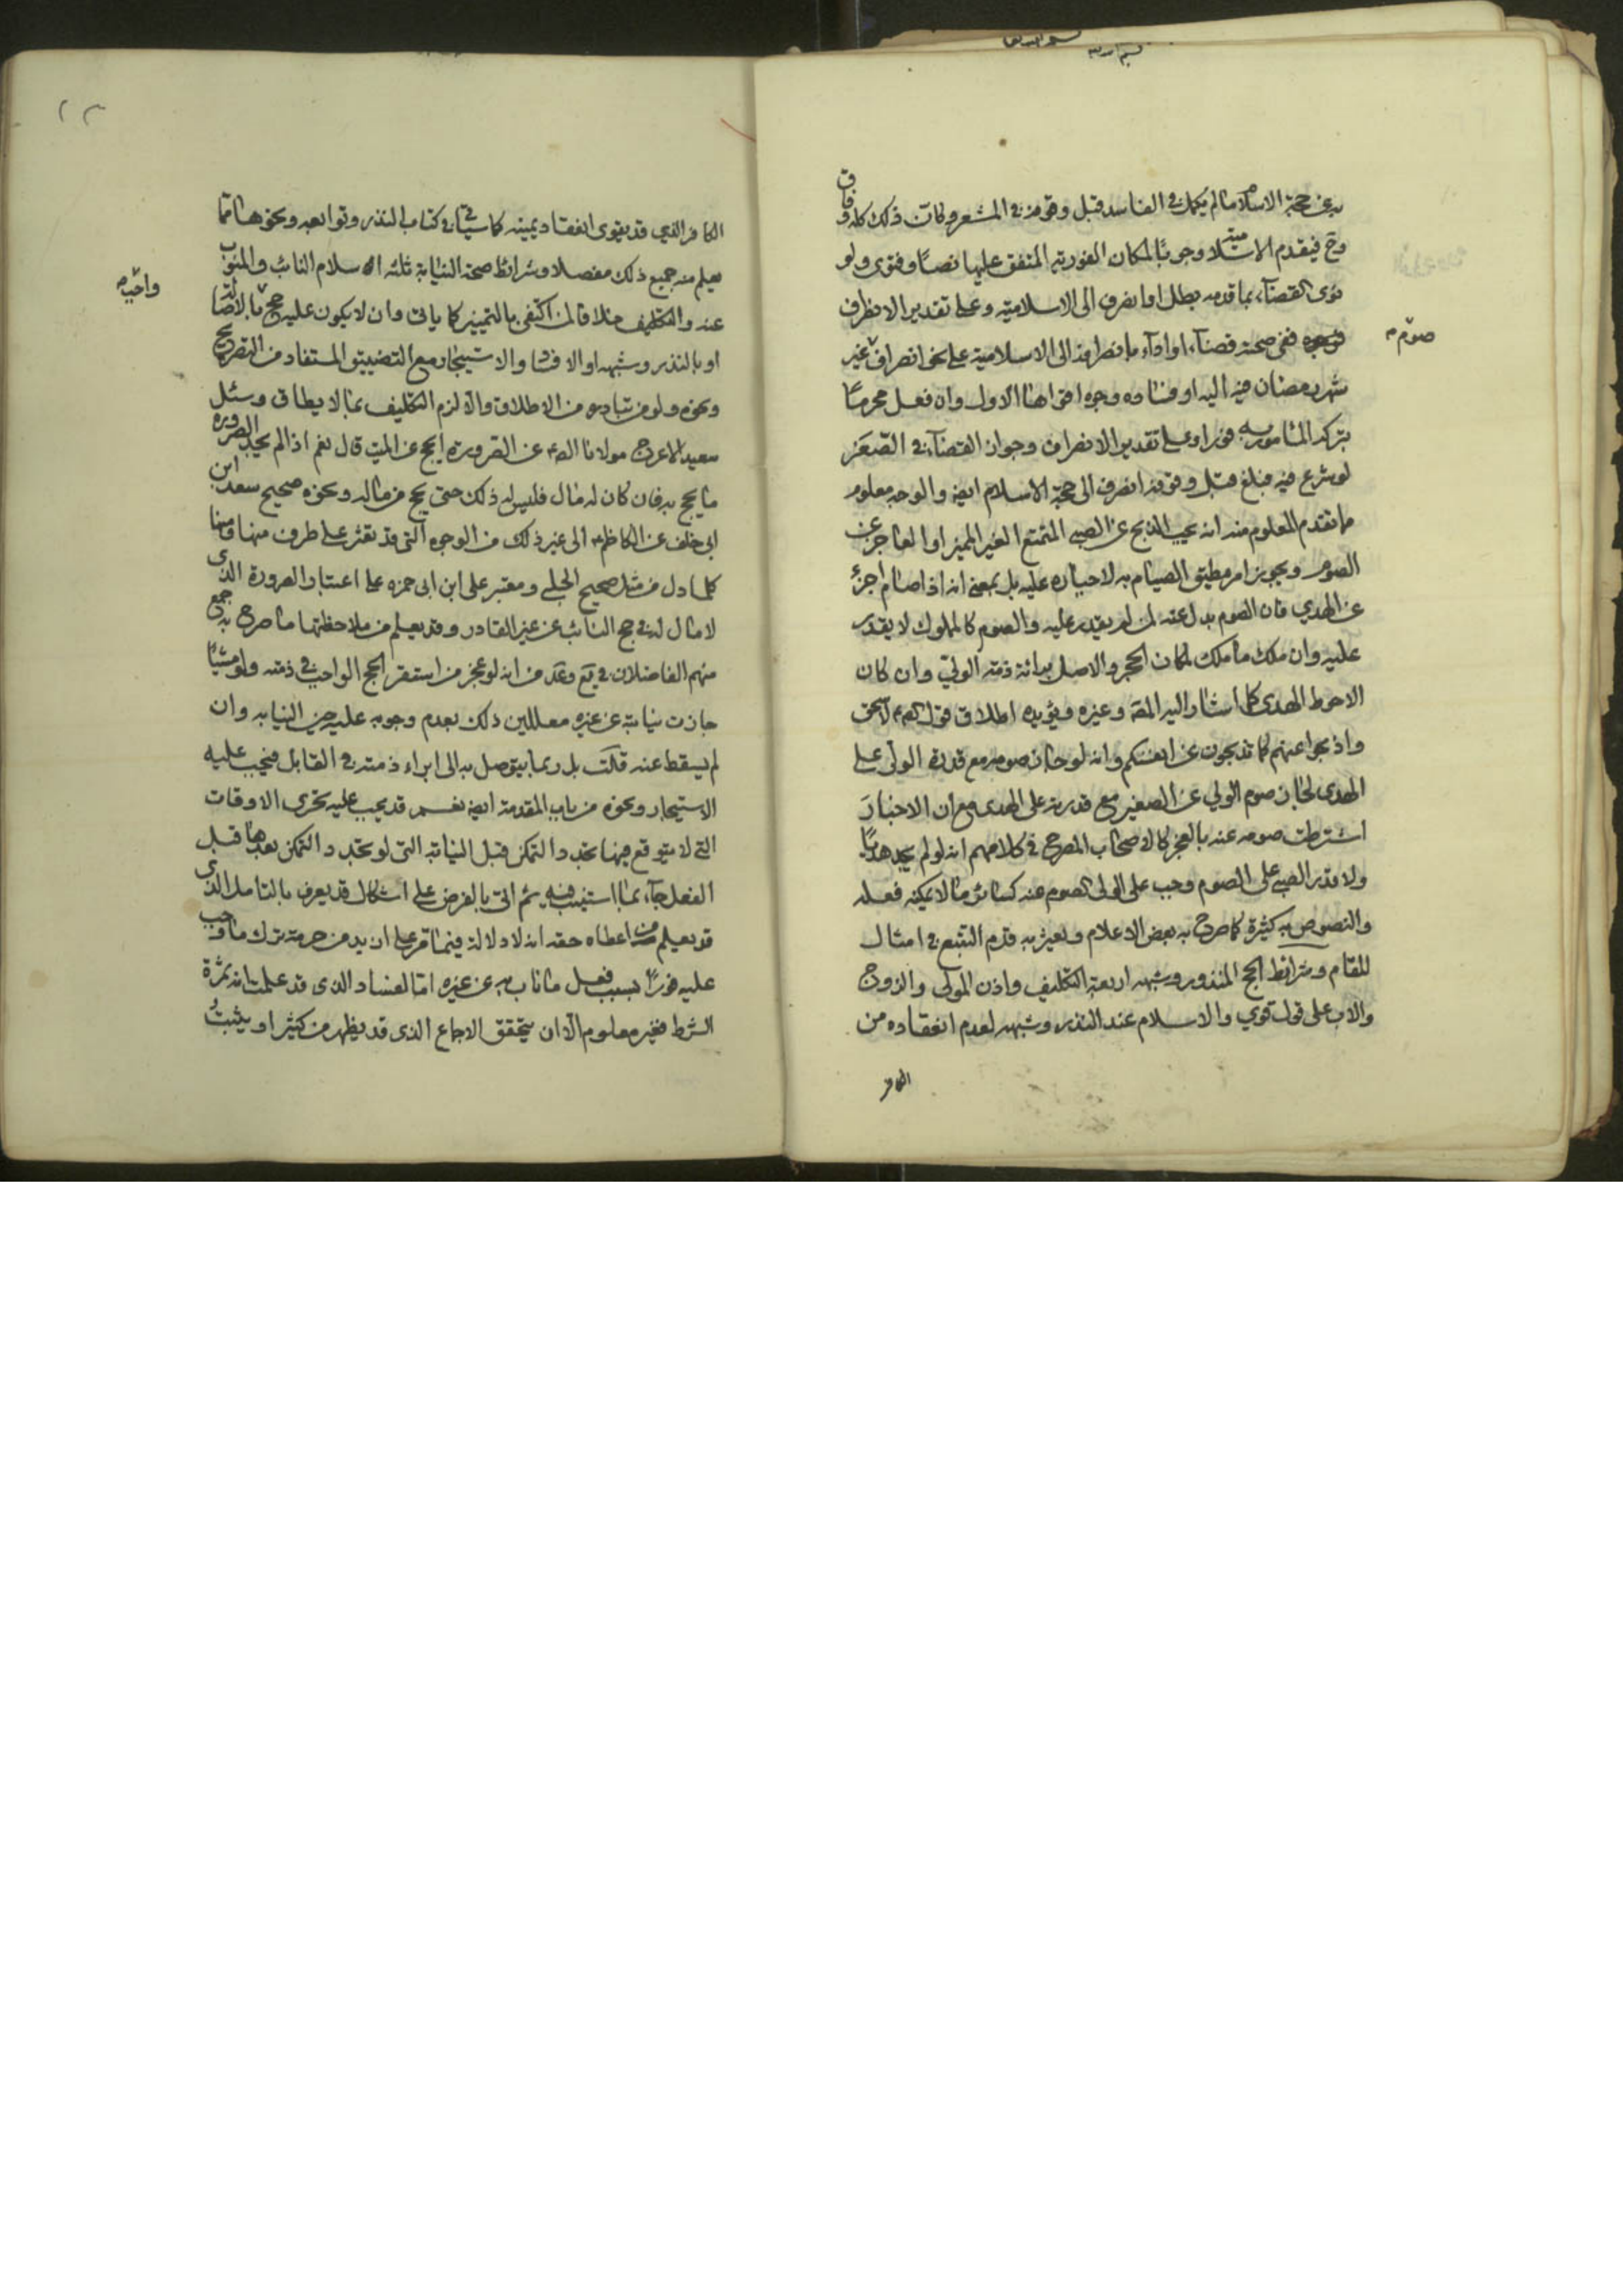 به عن حجة الاسلام ما لم يكمل في الفاسد قبل وقوفه في المشعر وكان ذلك كله وفاق
وح فيقدم الاسلامية وجوبًا لمكان الفورية المتفق عليها نصًا وفتوى ولو
نوى القضآء بما قدمه بطل او انصرف الى الاسلامية وعلى تقدير الانصراف
ففي صحته قضآء او ادآء بانصرافه الى الاسلامية على نحو انصراف صوم غير
شهر رمضان فيه اليه او فساده وجوه اقواها الاول وان فعل محرمًا
بتركه المأمور به فورا وعلى تقدير الانصراف وجواز القضآء في الصغر
لو شرع فيه فبلغ قبل وقوفه انصرف الى حجة الاسلام ايضا والوجه معلوم
مما تقدم المعلوم منه انه يجب الذبح عن الصبي المتمتع الغير المميز او العاجز عن
الصوم ويجوز امر مطيق الصيام به لاجباره عليه بل بمعنى انه اذا صام اجزء
عن الهدي فان الصوم بدل عنه لمن لم يقدر عليه والصوم كالمملوك لا يقدر
عليه وان ملك ما ملك لمكان الحجر والاصل برائة ذمة الولي وان كان
الاحوط الهدى كما اشار اليه المقه وغيره ويؤيده اطلاق قوله لاسحق
واذبحوا عنهم كما تذبحون عن انفسكم وانه لو جاز صومه مع قدرة الولي على
الهدى لجاز صوم الولي عن الصغير مع قدرته على الهدى مع ان الاخبار
اشترطت صومه عنه بالعجز كالاصحاب المصرح في كلامهم انه لو لم يجد هديًا
ولا قدر الصبي على الصوم وجب على الولي الصوم عنه كسائر ما لا يمكنه فعله
والنصوص به كثيرة كما صرح به بعض الاعلام ويعثر به قدم التتبع في امثال
المقام وشرائط الحج المنذور وشبهه اربعة التكليف واذن المولى والزوج
والاب على قول قوي والاسلام عند النذر وشبهه لعدم انعقاده من
الكافر
صوم
الكافر الذي قد يقوى انعقاد يمينه كما سيأتي في كتاب النذر وتوابعه ونحوهما مما
يعلم منه جميع ذلك مفصلا وشرائط صحة النيابة ثلثة الاسلام النائب والمنوب
عنه والتكليف خلافا لمن اكتفى بالتمييز كما ياتى وان لا يكون عليه حج واجب بالاصالة
او بالنذر وشبهه او الافساد والاستيجار مع التضييق المستفاد من التصريح
ونحوه ولو من تبادره من الاطلاق والا لزم التكليف بما لا يطاق وسئل
سعيد الاعرج مولانا الصادق عن الصرورة ايحج عن الميت قال نعم اذا لم يجد الصرورة
ما يحج به فان كان له مال فليس له ذلك حتى يحج من ماله ونحوه صحيح سعد ابن
ابي خلف عن الكاظم الى غير ذلك من الوجوه التي قد تعثر على طرف منها ومنها
كلما دل من مثل صحيح الحلبي ومعتبر على ابن ابي حمزه على اعتبار الصرورة الذى
لا مال له في حج النائب عن غير القادر وقد يعلم من ملاحظتها ما صرح به جمع
منهم الفاضلان في يع وعد من انه لو عجز من استقر الحج الواجب في ذمته ولو مشيًا
جازت نيابته عن غيره معللين ذلك بعدم وجوبه عليه حين النيابه وان
لم يسقط عنه قلت بل ربما يتوصل به الى ابراء ذمته في القابل فيجب عليه
الاستيجار ونحوه من باب المقدمة ايضا نعم قد يجب عليه تحرى الاوقات
التي لا يتوقع فيها تجدد التمكن قبل النيابة التي لو تجدد التمكن بعدها قبل
الفعل جآء بما استنيب فيه ثم اتى بالفرض على اشكال قد يعرف بالتامل الذى
قد يعلم من اعطاه حقه انه لا دلالة فيما تقرر على ازيد من حرمة ترك ما وجب
عليه فورًا بسبب فعل ما ناب به عن غيره اما الفساد الذى قد علمت انه ثمرة
الشرط فغير معلوم الا ان يتحقق الاجماع الذى قد يظهر من كثير او يثبت
واجب